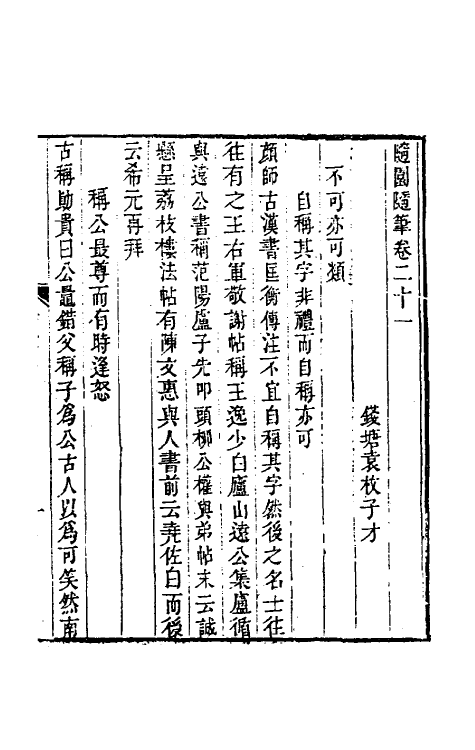 隨園隨筆卷二十一
錢塘袁枚子才
不可亦可類
自稱其字非禮而自稱亦可
顔師古漢書匡衡傳注不宜自稱其字然後之名士往
往有之王右軍敬謝帖稱王逸少白廬山遠公集盧循
與遠公書稱范陽盧子先叩頭柳公權與弟帖末云誠
懸呈荔枝樓法帖有陳文惠與人書前云堯佐白而後
云希元再拜
稱公最尊而有時逢怒
古稱助貴曰公鼂錯父稱子爲公古人以爲可笑然南